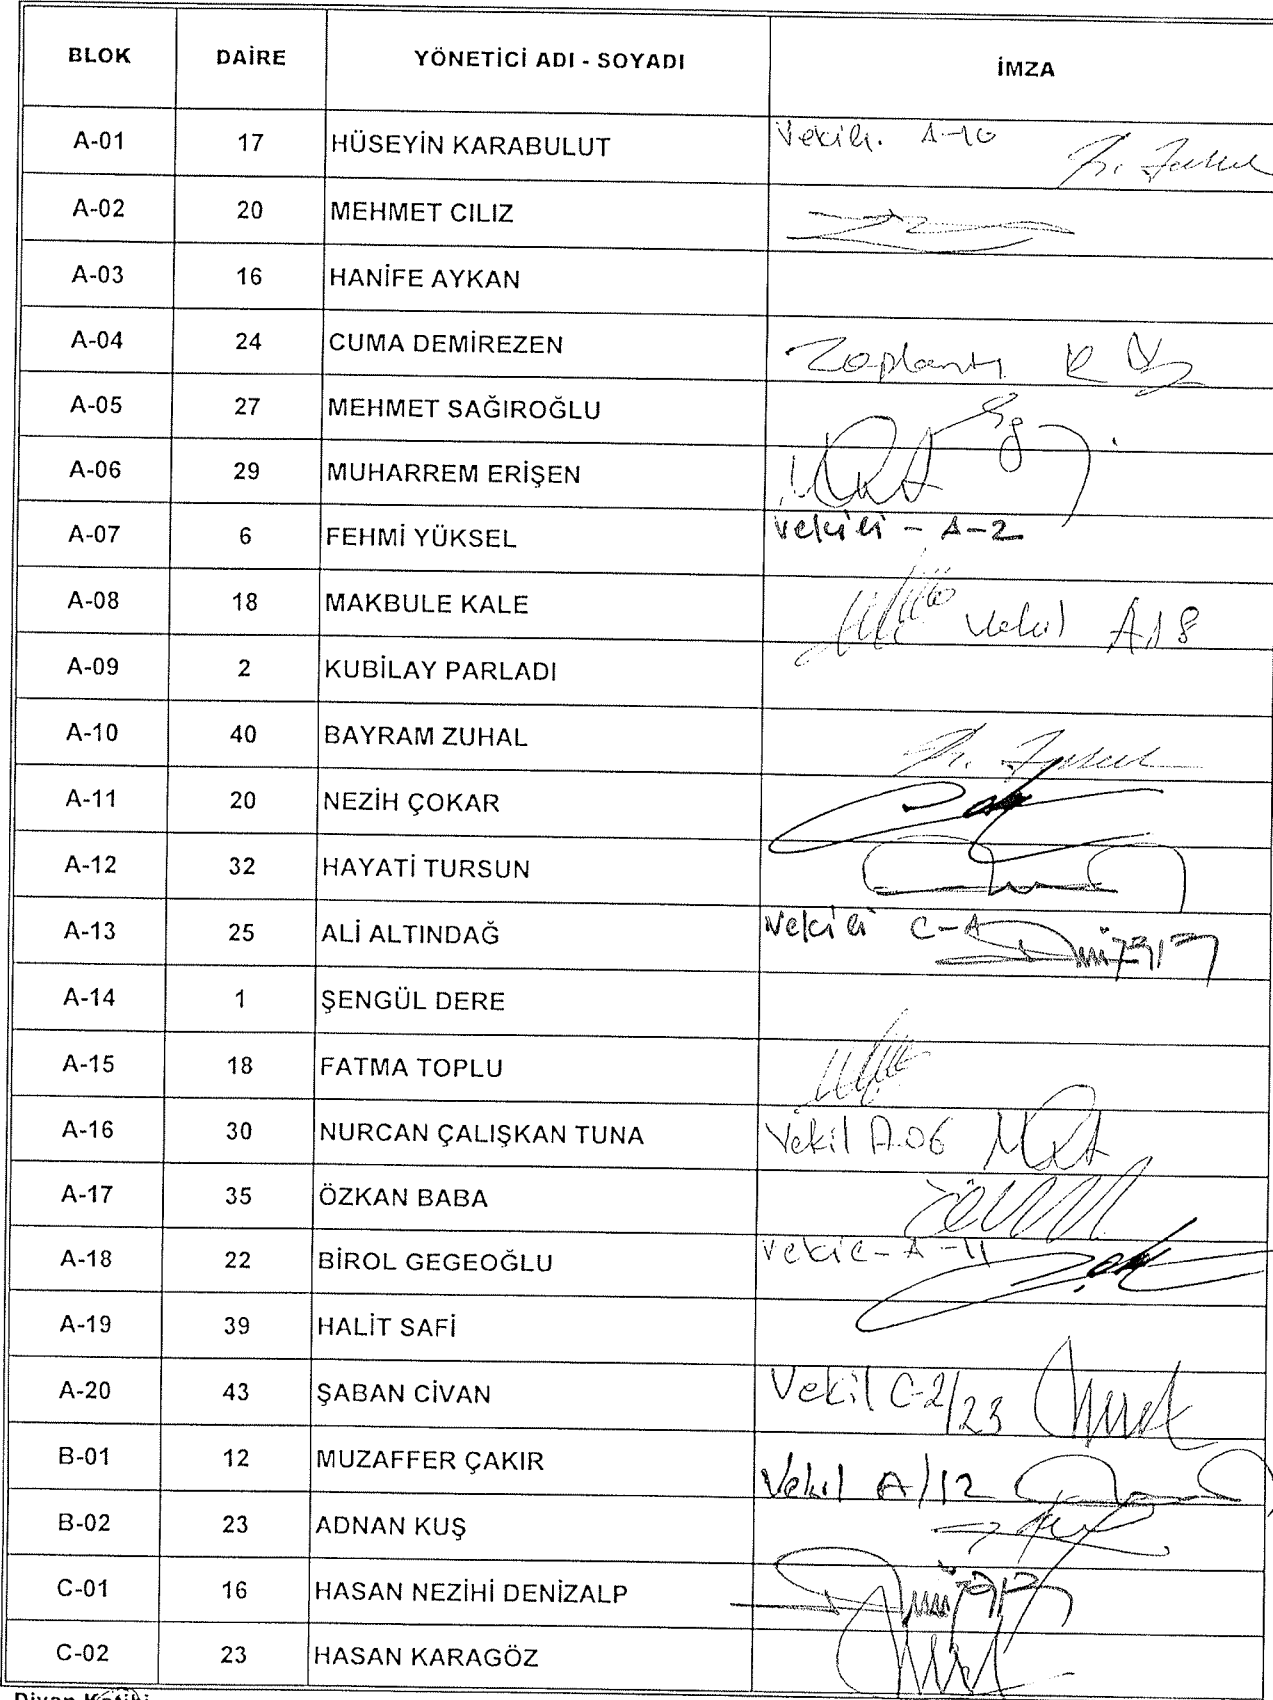 BLOK DAİRE YÖNETİCİ ADI - SOYADI İMZA
A-01 17 HÜSEYİN KARABULUT Vekili. A-10
A-02 20 MEHMET CILIZ
A-03 16 HANİFE AYKAN
A-04 24 CUMA DEMİREZEN
A-05 27 MEHMET SAĞIROĞLU
A-06 29 MUHARREM ERİŞEN
A-07 6 FEHMİ YÜKSEL Vekili - A-2
A-08 18 MAKBULE KALE Vekil A18
A-09 2 KUBİLAY PARLADI
A-10 40 BAYRAM ZUHAL
A-11 20 NEZİH ÇOKAR
A-12 32 HAYATİ TURSUN
A-13 25 ALİ ALTINDAĞ Vekili C-1
A-14 1 ŞENGÜL DERE
A-15 18 FATMA TOPLU
A-16 30 NURCAN ÇALIŞKAN TUNA Vekil A.06
A-17 35 ÖZKAN BABA
A-18 22 BİROL GEGEOĞLU Vekil - A-11
A-19 39 HALİT SAFİ
A-20 43 ŞABAN CİVAN Vekil C-2/23
B-01 12 MUZAFFER ÇAKIR Vekil A/12
B-02 23 ADNAN KUŞ
C-01 16 HASAN NEZİHİ DENİZALP
C-02 23 HASAN KARAGÖZ
Divan Katibi